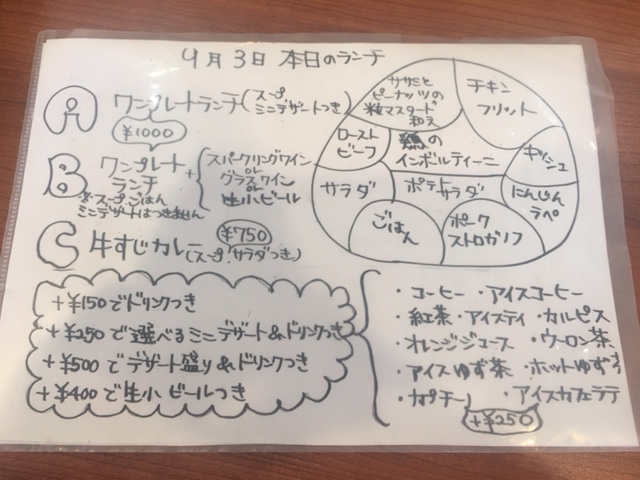 4月3日 本日のランチ
A ワンプレートランチ(スープ ミニデザートつき)
¥1000
B ワンプレートランチ +
スパークリングワイン
or
グラスワイン
or
生小ビール
※スープ ごはん
ミニデザートはつきません
C 牛すじカレー ¥750
(スープ・サラダつき)
ササミと
ピーナッツの
粒マスタード
和え
チキン
フリット
ロースト
ビーフ
鶏の
インボルティーニ
キッシュ
サラダ
ポテトサラダ
にんじん
ラペ
ごはん
ポーク
ストロガノフ
+¥150でドリンクつき
+¥250で選べるミニデザート&ドリンクつき
+¥500でデザート盛り&ドリンクつき
+¥400で生小ビールつき
・コーヒー ・アイスコーヒー
・紅茶 ・アイスティ ・カルピス
・オレンジジュース ・ウーロン茶
・アイスゆず茶 ・ホットゆず茶
・カプチーノ ・アイスカフェラテ
+¥250